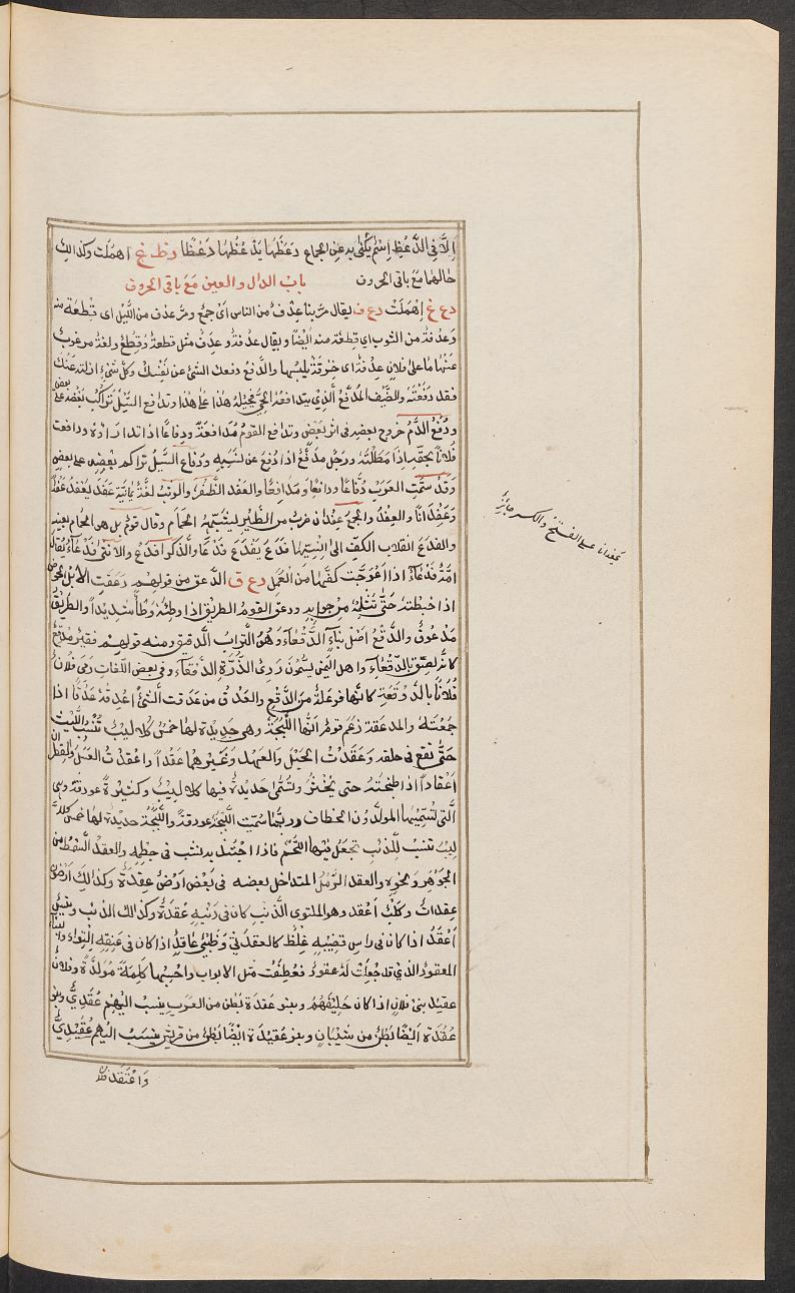 إلا في الدعظ اسم يكنى به عن الجماع دعظها يدعظها دعظا د ظ غ اهملت وكذلك
حالهما مع باقي الحروف باب الدال والعين مع باقي الحروف
د ع غ اهملت د ع ف يقال مر بنا عدف من الناس اى جمع ومر عدف من الليل اى قطعة منه
وعدفة من الثوب اى قطعة منه ايضا ويقال عدفة وعدف مثل قطعة وقطع ولغة مرغوب
عنها ما على فلان عدفة اى خرقة يلبسها والدفع دفعك الشئ عن نفسك وكل شئ ازلته عنك
فقد دفعته والضيف المدفع الذي يتدافعه الحي يحيله هذا على هذا وتدافع السيل تراكب بعضه على بعض
ودفع الدم خروج بعضه في اثر بعض وتدافع القوم مدافعة ودفاعا اذا تداراوا ودافعت
فلانا بحقه اذا مطلته ورجل مدفع اذا دفع عن نسبه ودفاع السيل تراكم بعضه على بعض
وقد سمت العرب دفاعا ودافعا ومدافعا والعقد الظفر والوثب لغة يمانية عفد يعفد عفدا
وعفدانا والعفد والجمع عفدان ضرب من الطير يشبه الحمام وقال قوم بل هو الحمام بعينه
والفدع انقلاب الكف الى انسيها فدع يفدع فدعا والذكر افدع والانثى فدعاء يقال
امة فدعاء اذا اعوجت كفها من العمل د ع ق الدعق من قولهم دعقت الابل الحوض
اذا خبطته حتى تثلمه من جوانبه ودعق القوم الطريق اذا وطئه وطأ شديدا والطريق
مدعوق والدقع اصل بناء الدقعاء وهو التراب الدقيق ومنه قولهم فقير مدقع
كانه لصق بالدقعاء واهل اليمن يسمون ردئ الذرة الدقعاء وفي بعض اللغات رمى فلان
فلانا بالدوقعة كانها فوعلة من الدقع والعدق من عدقت الشئ اعدقه عدقا اذا
جمعته والمدعقة زعم قوم انها اللبجة وهي حديدة لها خمس كلاليب تنشب
حتى تقع في حلقه وعقدت الحبل والعهد وغيرهما عقدا واعقدت العسل والقطران
اعقادا اذا طبخته حتى يخثر وتسمى حديدة فيها كلاليب وكثيرة عودقة وهي
التي تسميها المولدون الخطاف وربما سميت اللبجة عودقة واللبجة حديدة لها خمس كلا
ليب تنشب للذئب تجعل فيها اللحم فاذا اجتذبه نشب في خطمه والعقد السمط من
الجوهر ونحوه والعقد الرمل المتداخل بعضه في بعض ارض عقدة وكذلك ارض
عقدات وكلب اعقد وهو الملتوى الذنب كان في ذنبه عقدة وكذلك الذئب وتيس
اعقد اذا كان في راس قضيبه غلظ كالعقدة وظبي عاقد اذا كان في عنقه التواء والبناء
المعقود الذي قد جعلت له عقود فعطفت مثل الابواب واحسبها كلمة مولدة وفلان
عقيد بني فلان اذا كان حليفهم وبنو عقدة بطن من العرب ينسب اليهم عقدي وبنو
عقدة ايضا بطن من شيبان وبنو عقيدة ايضا بطن من قريش ينسب اليهم عقيدي
واعتقد فلان
عفدانا على الفتح والكسر جايز